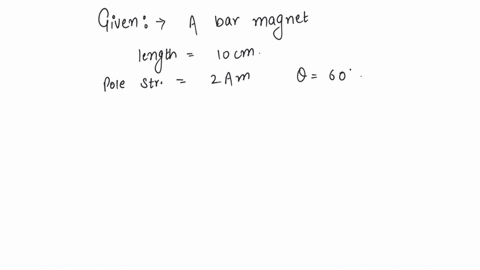 Given:→ A bar magnet
length = 10 cm.
Pole Str. = 2 Am θ = 60°.